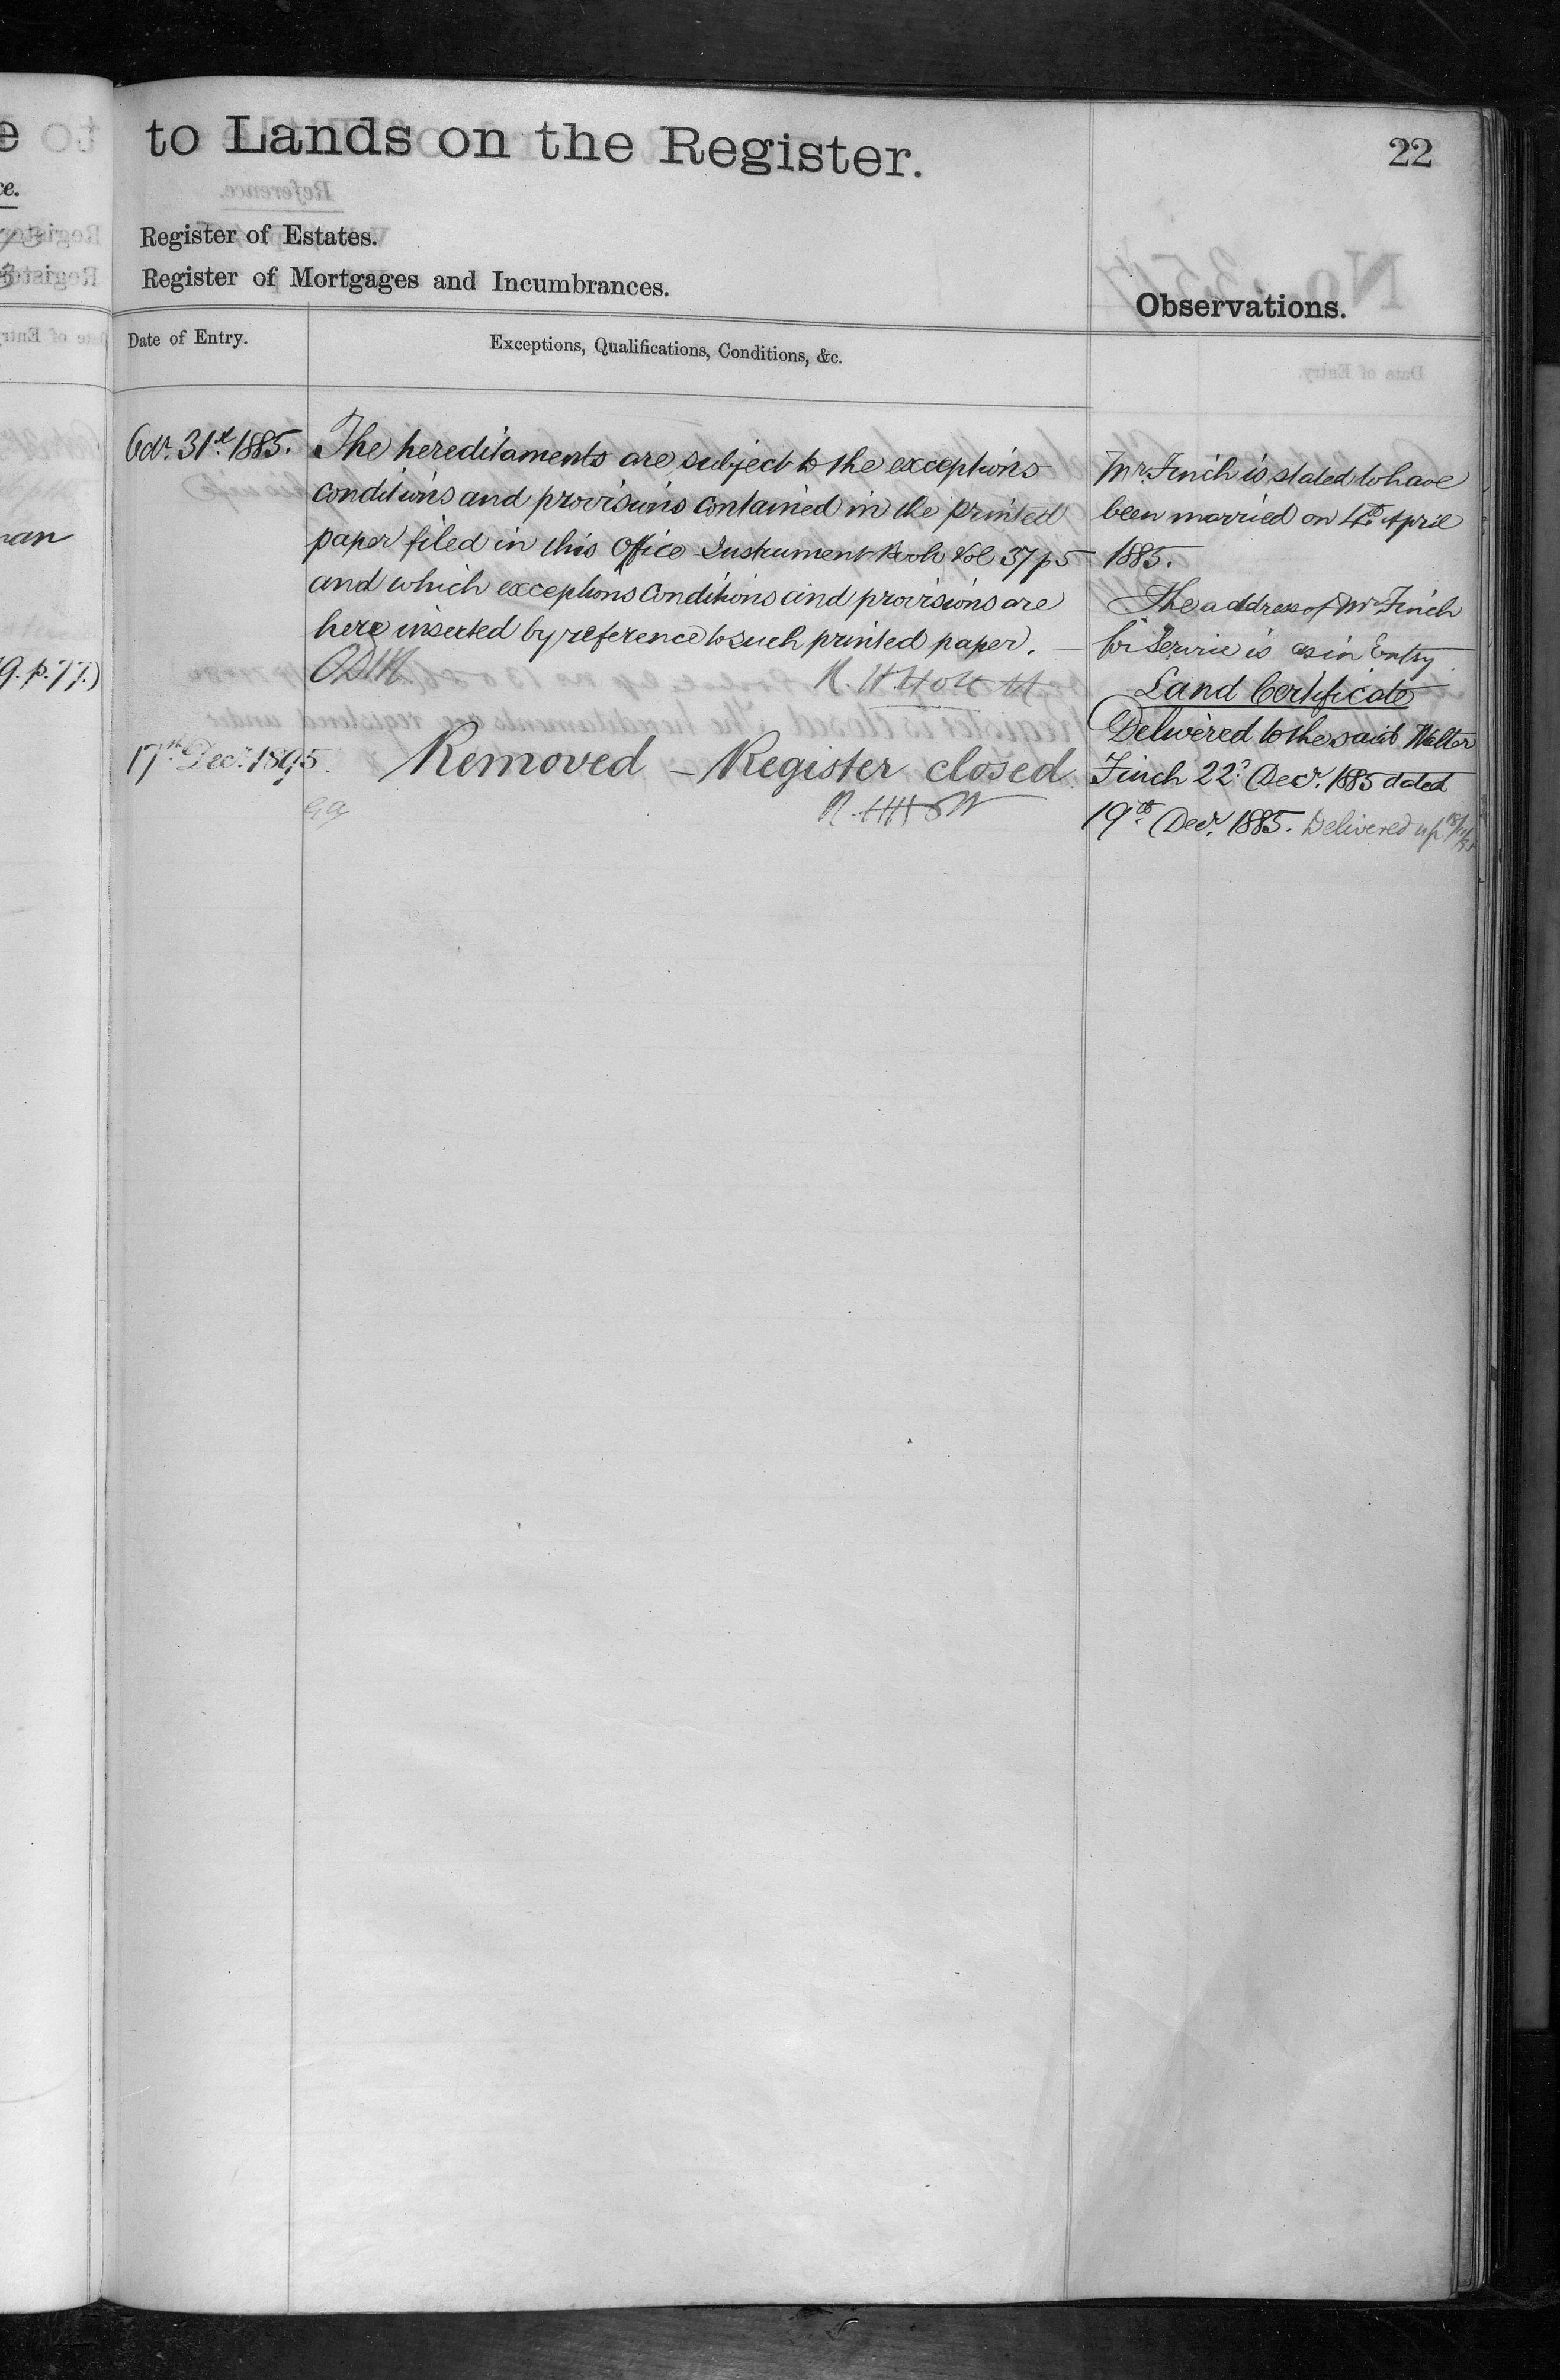 to Lands on the Register.
22
Register of Estates.
Register of Mortgages and Incumbrances.
Observations.
Date of Entry.
Exceptions, Qualifications, Conditions, &c.
Octr. 31st. 1885.
The hereditaments are subject to the exceptions
conditions and provisions contained in the printed
paper filed in this Office Instrument Book Vol 37 p 5
and which exceptions conditions and provisions are
here inserted by reference to such printed paper.
17th Decr. 1895.
Removed – Register closed.
Mr. Finch is stated to have
been married on 4th April
1885.
The address of Mr Finch
for Service is as in Entry
Land Certificate
Delivered to the said Walter
Finch 22d. Decr. 1885 dated
19th Decr. 1885. Delivered up
man
9. p. 77.)